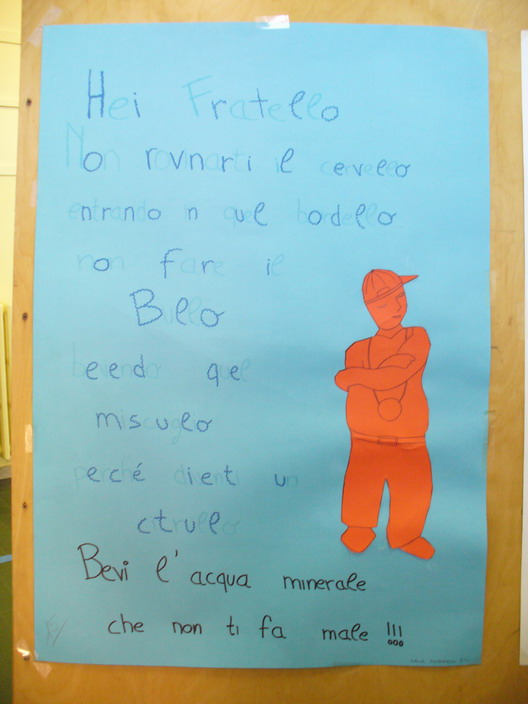 Hei Fratello
Non rovinarti il cervello
entrando in quel bordello
non fare il
Bullo
bevendo quel
miscuglio
perché diventi un
citrullo
Bevi l'acqua minerale
che non ti fa male !!!